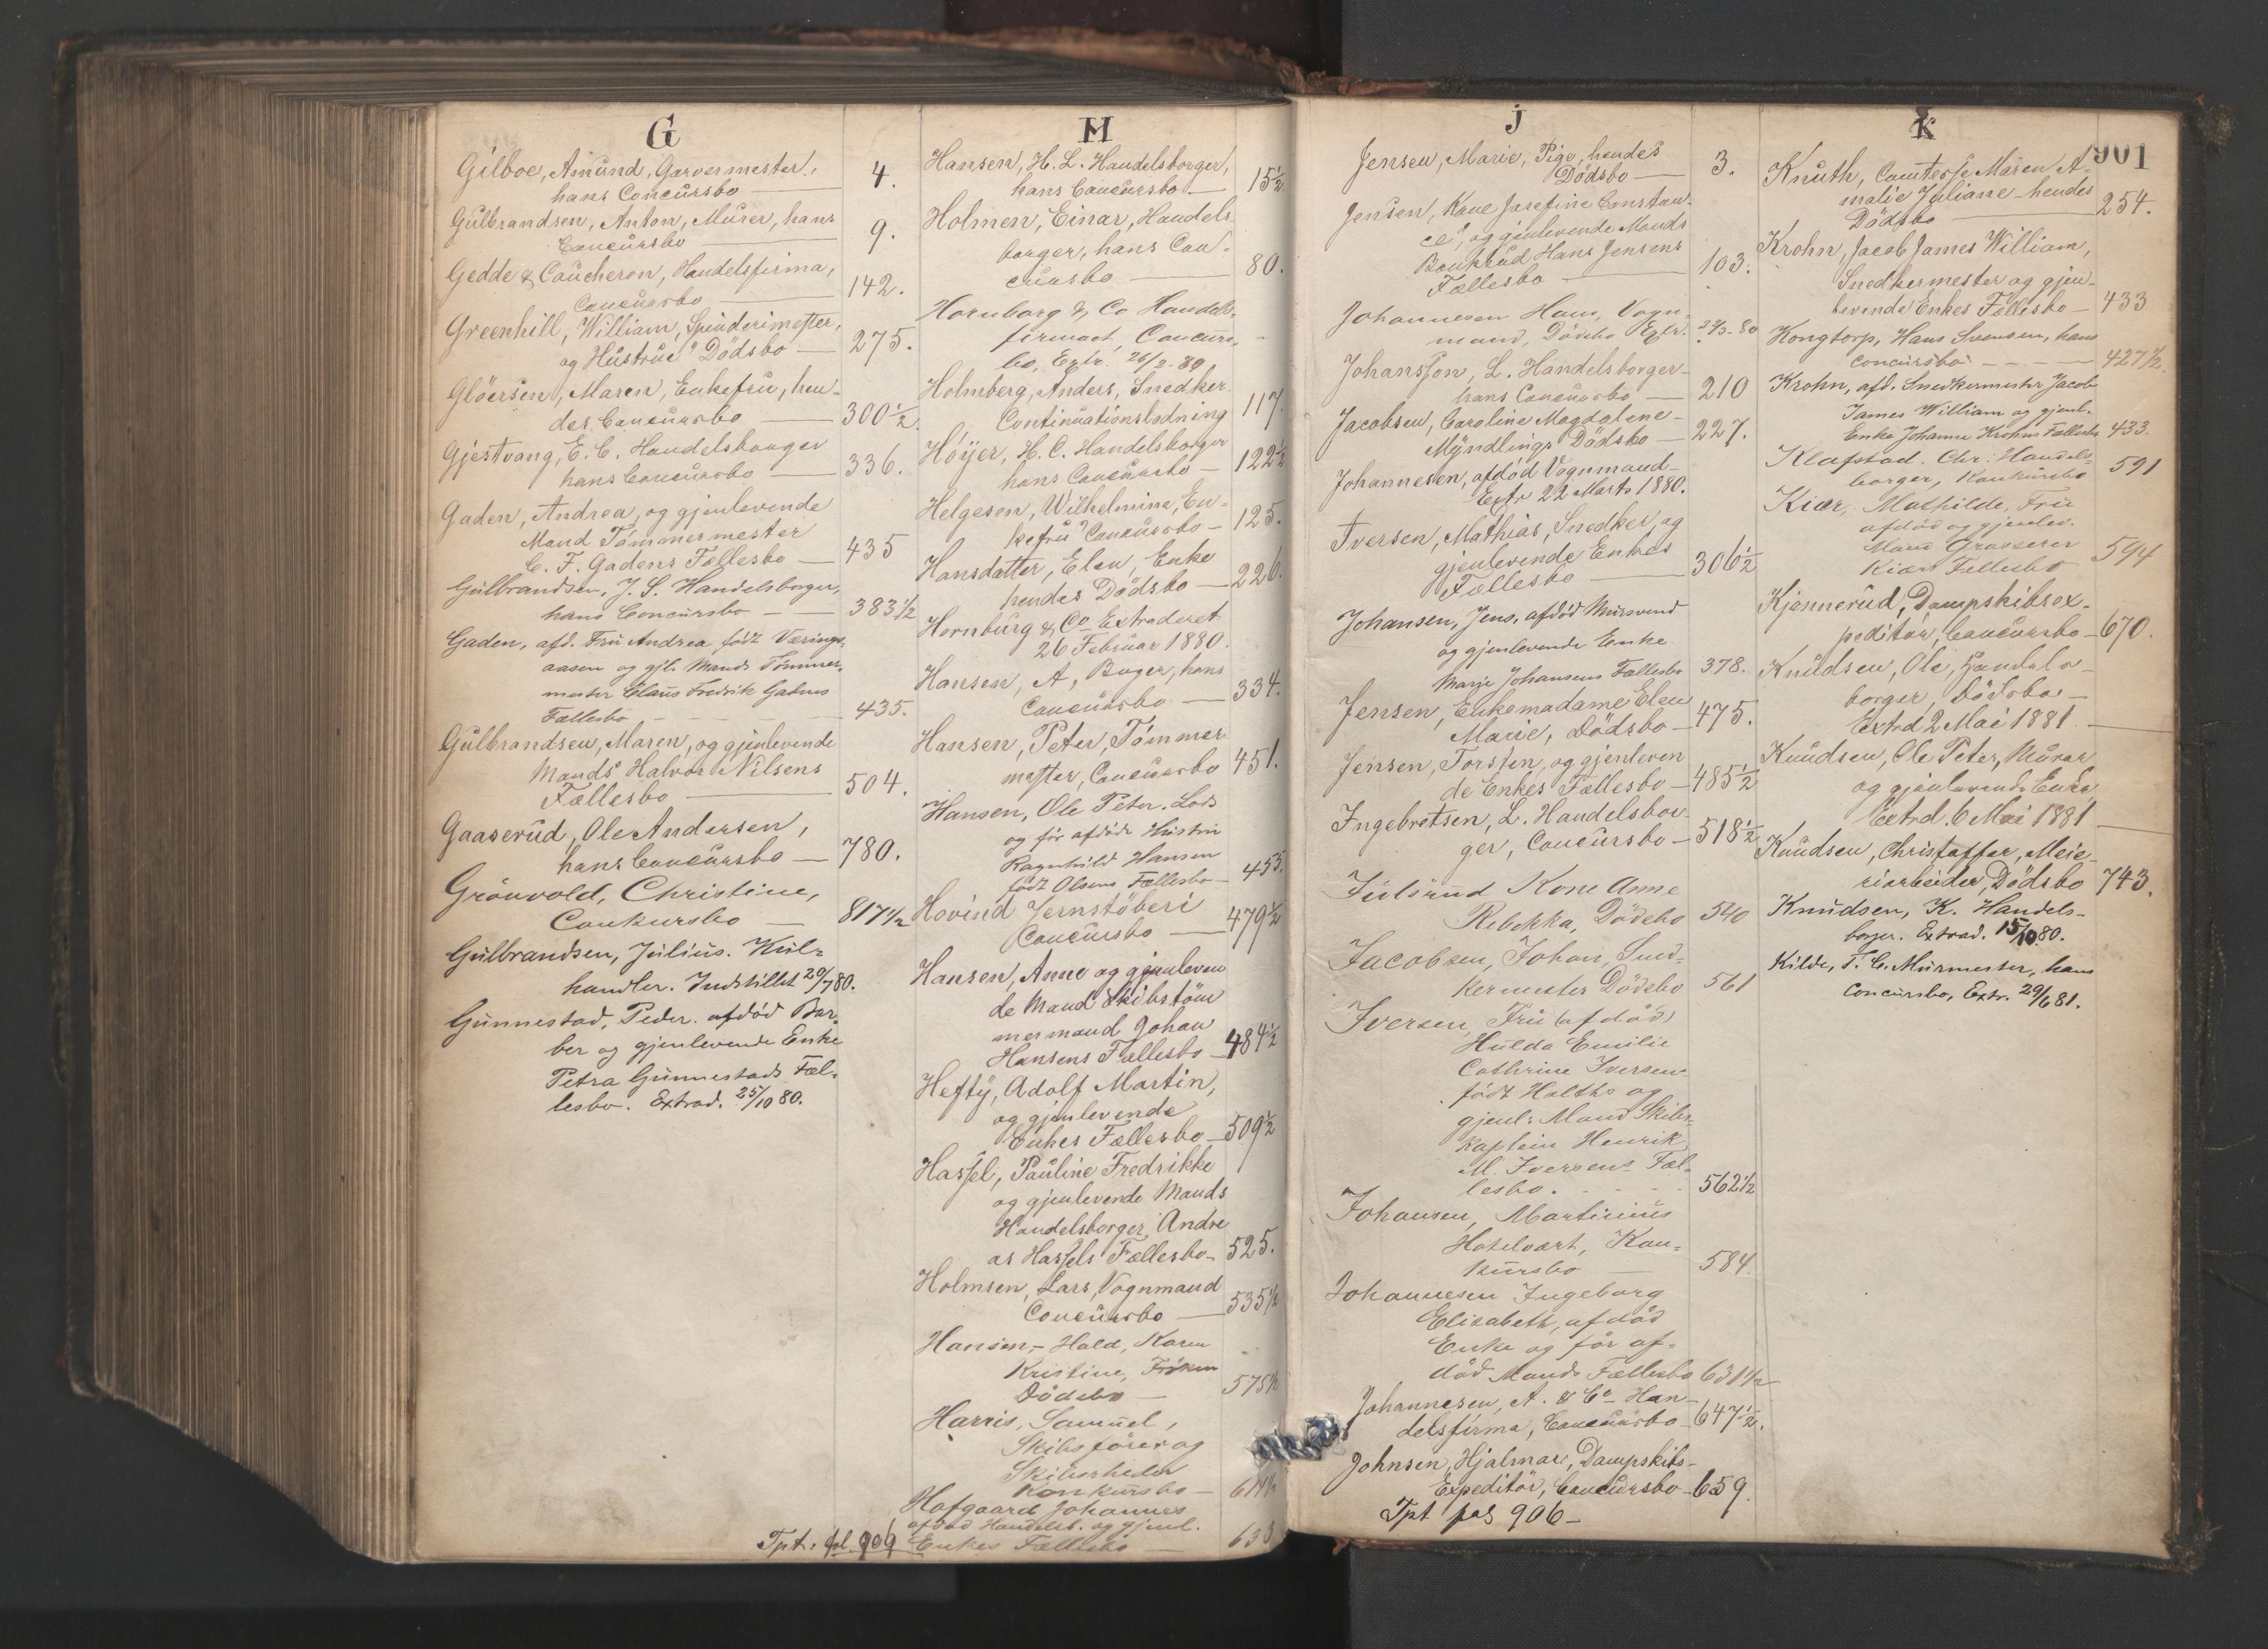 G
Gilboe, Amund, Garvermester,
hans Concursbo — 4.
Gulbrandsen, Anton, Murer, hans
Concursbo — 9.
Gedde & Caucheron, Handelsfirma,
Concursbo — 142.
Greenhill, William, Spinderimester,
og Hustrues Dödsbo — 275.
Glöersen, Maren, Enkefru, hen-
des Concursbo — 300½.
Gjestvang, E. C. Handelsborger
hans Concursbo — 336.
Gaden, Andrea, og gjenlevende
Mand Tömmermester
C. F. Gadens Fællesbo — 435
Gulbrandsen, J. S. Handelsborger,
hans Concursbo — 383½
Gaden, afd. Fru Andrea födt Værings-
aasen og gjl. Mands Tömmer-
mester Claus Fredrik Gadens
Fællesbo — 435.
Gulbrandsen, Maren, og gjenlevende
Mands Halvor Nilsens
Fællesbo — 504.
Gaaserud, Ole Andersen,
hans Concursbo — 780.
Grönvold, Christine,
Conkursbo — 817½
Gulbrandsen, Julius. Kul-
handler. Indstillet 20/7 80.
Gunnestad, Peder. afdöd Bar-
ber og gjenlevende Enke
Petra Gunnestads Fæl-
lesbo. Extrad. 25/10 80.
H
Hansen, H. L. Handelsborger,
hans Concursbo — 15½
Holmen, Einar, Handels
borger, hans Con-
cursbo — 80.
Hornburg & Co Handels-
firmaet, Concurs-
bo, Extr. 26/2-80
Holmberg, Anders, Snedker
Continuationslodning 117.
Höyer, H. C. Handelsborger
hans Concursbo — 122½
Helgesen, Wilhelmine, En-
kefru Concursbo — 125.
Hansdatter, Elen, Enke
hendes Dödsbo — 226.
Hornburg & Co Extraderet
26 Februar 1880.
Hansen, A, Bager, hans
Concursbo — 334.
Hansen, Peter, Tömmer
mester, Concursbo 451.
Hansen, Ole Peter. Lods
og för afdöde Hustru
Ragnhild Hansen
födt Olsens Fællesbo — 453.
Hovind Jernstöberi
Concursbo — 479½
Hansen, Anne og gjenleven
de Mand Skibstöm
mermand Johan
Hansens Fællesbo — 484½
Hefty, Adolf Martin,
og gjenlevende
Enkes Fællesbo — 509½
Hassel, Pauline Fredrikke
og gjenlevende Mands
Handelsborger Andre
as Hassels Fællesbo — 525.
Holmsen, Lars, Vognmand
Concursbo — 535½
Hansen,- Hald, Karen
Kristine, Fröken
Dödsbo — 575½
Harris, Samuel,
Skibsförer og
Skibsrheder
Konkursbo — 614½
Hofgaard Johannes
afdöd Handelsb. og gjenl.
Tpt. fol. 906 Enkes Fællesbo —
J
Jensen, Marie, Pige, hendes
Dödsbo — 3.
Jensen, Kone Josefine Constan-
ce, og gjenlevende Mands
Bonkrud Hans Jensens
Fællesbo — 103.
Johannesen Hans, Vogn-
mand, Dödsbo Extr. 22/3-80
Johansson, L. Handelsborger
hans Concursbo — 210
Jacobsen, Caroline Magdalene
Myndlings Dödsbo — 227.
Johannesen, afdöd Vognmand
Extr 22 Marts 1880.
Iversen, Mathias, Snedker, og
gjenlevende Enkes
Fællesbo — 306½
Johansen, Jens, afdöd Mursvend
og gjenlevende Enke
Marje Johansens Fællesbo 378.
Jensen, Enkemadame Elen
Marie, Dödsbo — 475.
Jensen, Torsten, og gjenleven
de Enkes Fællesbo — 485½
Ingebretsen, L. Handelsbor-
ger, Concursbo — 518½
Kone Anne
Rebekka, Dödsbo 540
Jacobsen, Johan, Sned-
kermester Dödsbo 561
Iversen, Fru (afdöd)
Hulda Emilie
Cathrine Iversen
födt Holths og
gjenl. Mand Skibs-
kaptein Henrik
M. Iversens Fæl-
lesbo. — 562½
Johansen, Martinius
Hotelvært, Kon-
kursbo — 584.
Johannesen Ingeborg
Elisabeth, afdöd
Enke og för af-
död Mands Fællesbo 631½
Johannesen, A. & Co Han-
delsfirma, Concursbo — 647½.
Johnsen, Hjalmar, Dampskibs-
Expeditör, Concursbo — 659.
Tpt pag 906 —
K
901
Knuth, Comtesse Maren A-
malie Juliane hendes
Dödsbo — 254.
Krohn, Jacob James William,
Snedkermester og gjen-
levende Enkes Fællesbo — 433
Kongtorp, Hans Svensen, hans
Concursbo — 427½.
Krohn, afd. Snedkermester Jacob
James William og gjenl.
Enke Johanne Krohns Fællesbo 433.
Klafstad. Chr. Handels-
borger, Konkursbo 591
Kiær, Mathilde, Fru
afdöd og gjenlev.
Mand Grosserer
Kiærs Fællesbo 594
Kjennerud, Dampskibsex-
peditör, Concursbo — 670.
Knudsen, Ole, Handels-
borger, Dödsbo —
Extrd 2 Mai 1881 —
Knudsen, Ole Peter, Murer
og gjenlevende Enke
Extrd. 6 Mai 1881 —
Knudsen, Christoffer, Meie-
riarbeider, Dödsbo 743.
Knudsen, K. Handels-
borger. Extrad. 15/10 80.
Kilde, T. C. Murmester, hans
Concursbo, Extr. 29/6 81.